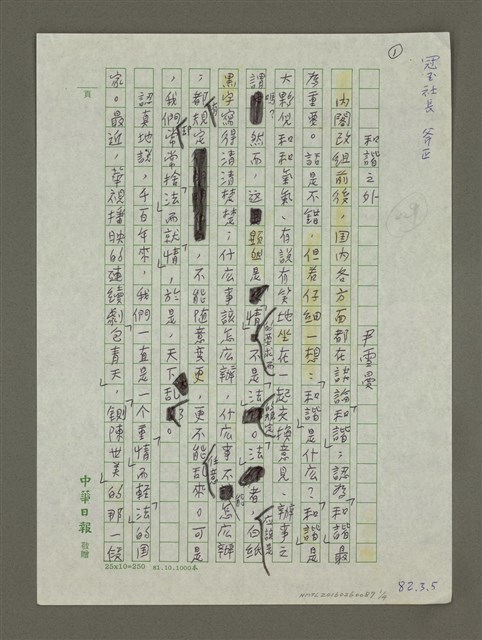 ①
冠玉社長 斧正
和諧之外
尹雪曼
內閣改組前後，國內各方面都在談論和諧；認為和諧最
為重要。話是不錯，但若仔細一想：「和諧是什麼？」和諧是
大夥似和和氣氣、有說有笑地坐在一起交換意見、辦事之
謂嗎？然而，這顯然是「情」的要求而不是「法」的規定。「法」者，應該是白紙
黑字寫得清清楚楚；什麼事該怎麼辦，什麼事不能怎麼辦
；都有規定，不能隨意變更，更不能任意亂來。可是
，我們卻常常「捨法而就情」，於是，天下亂了。
認真地說，千百年來，我們一直是一個「重情而輕法」的國
家。最近，華視播映的連續劇「包青天」，「鍘陳世美」的那一段
頁
中華日報 敬贈
25x10=250 81.10.1000本
82.3.5